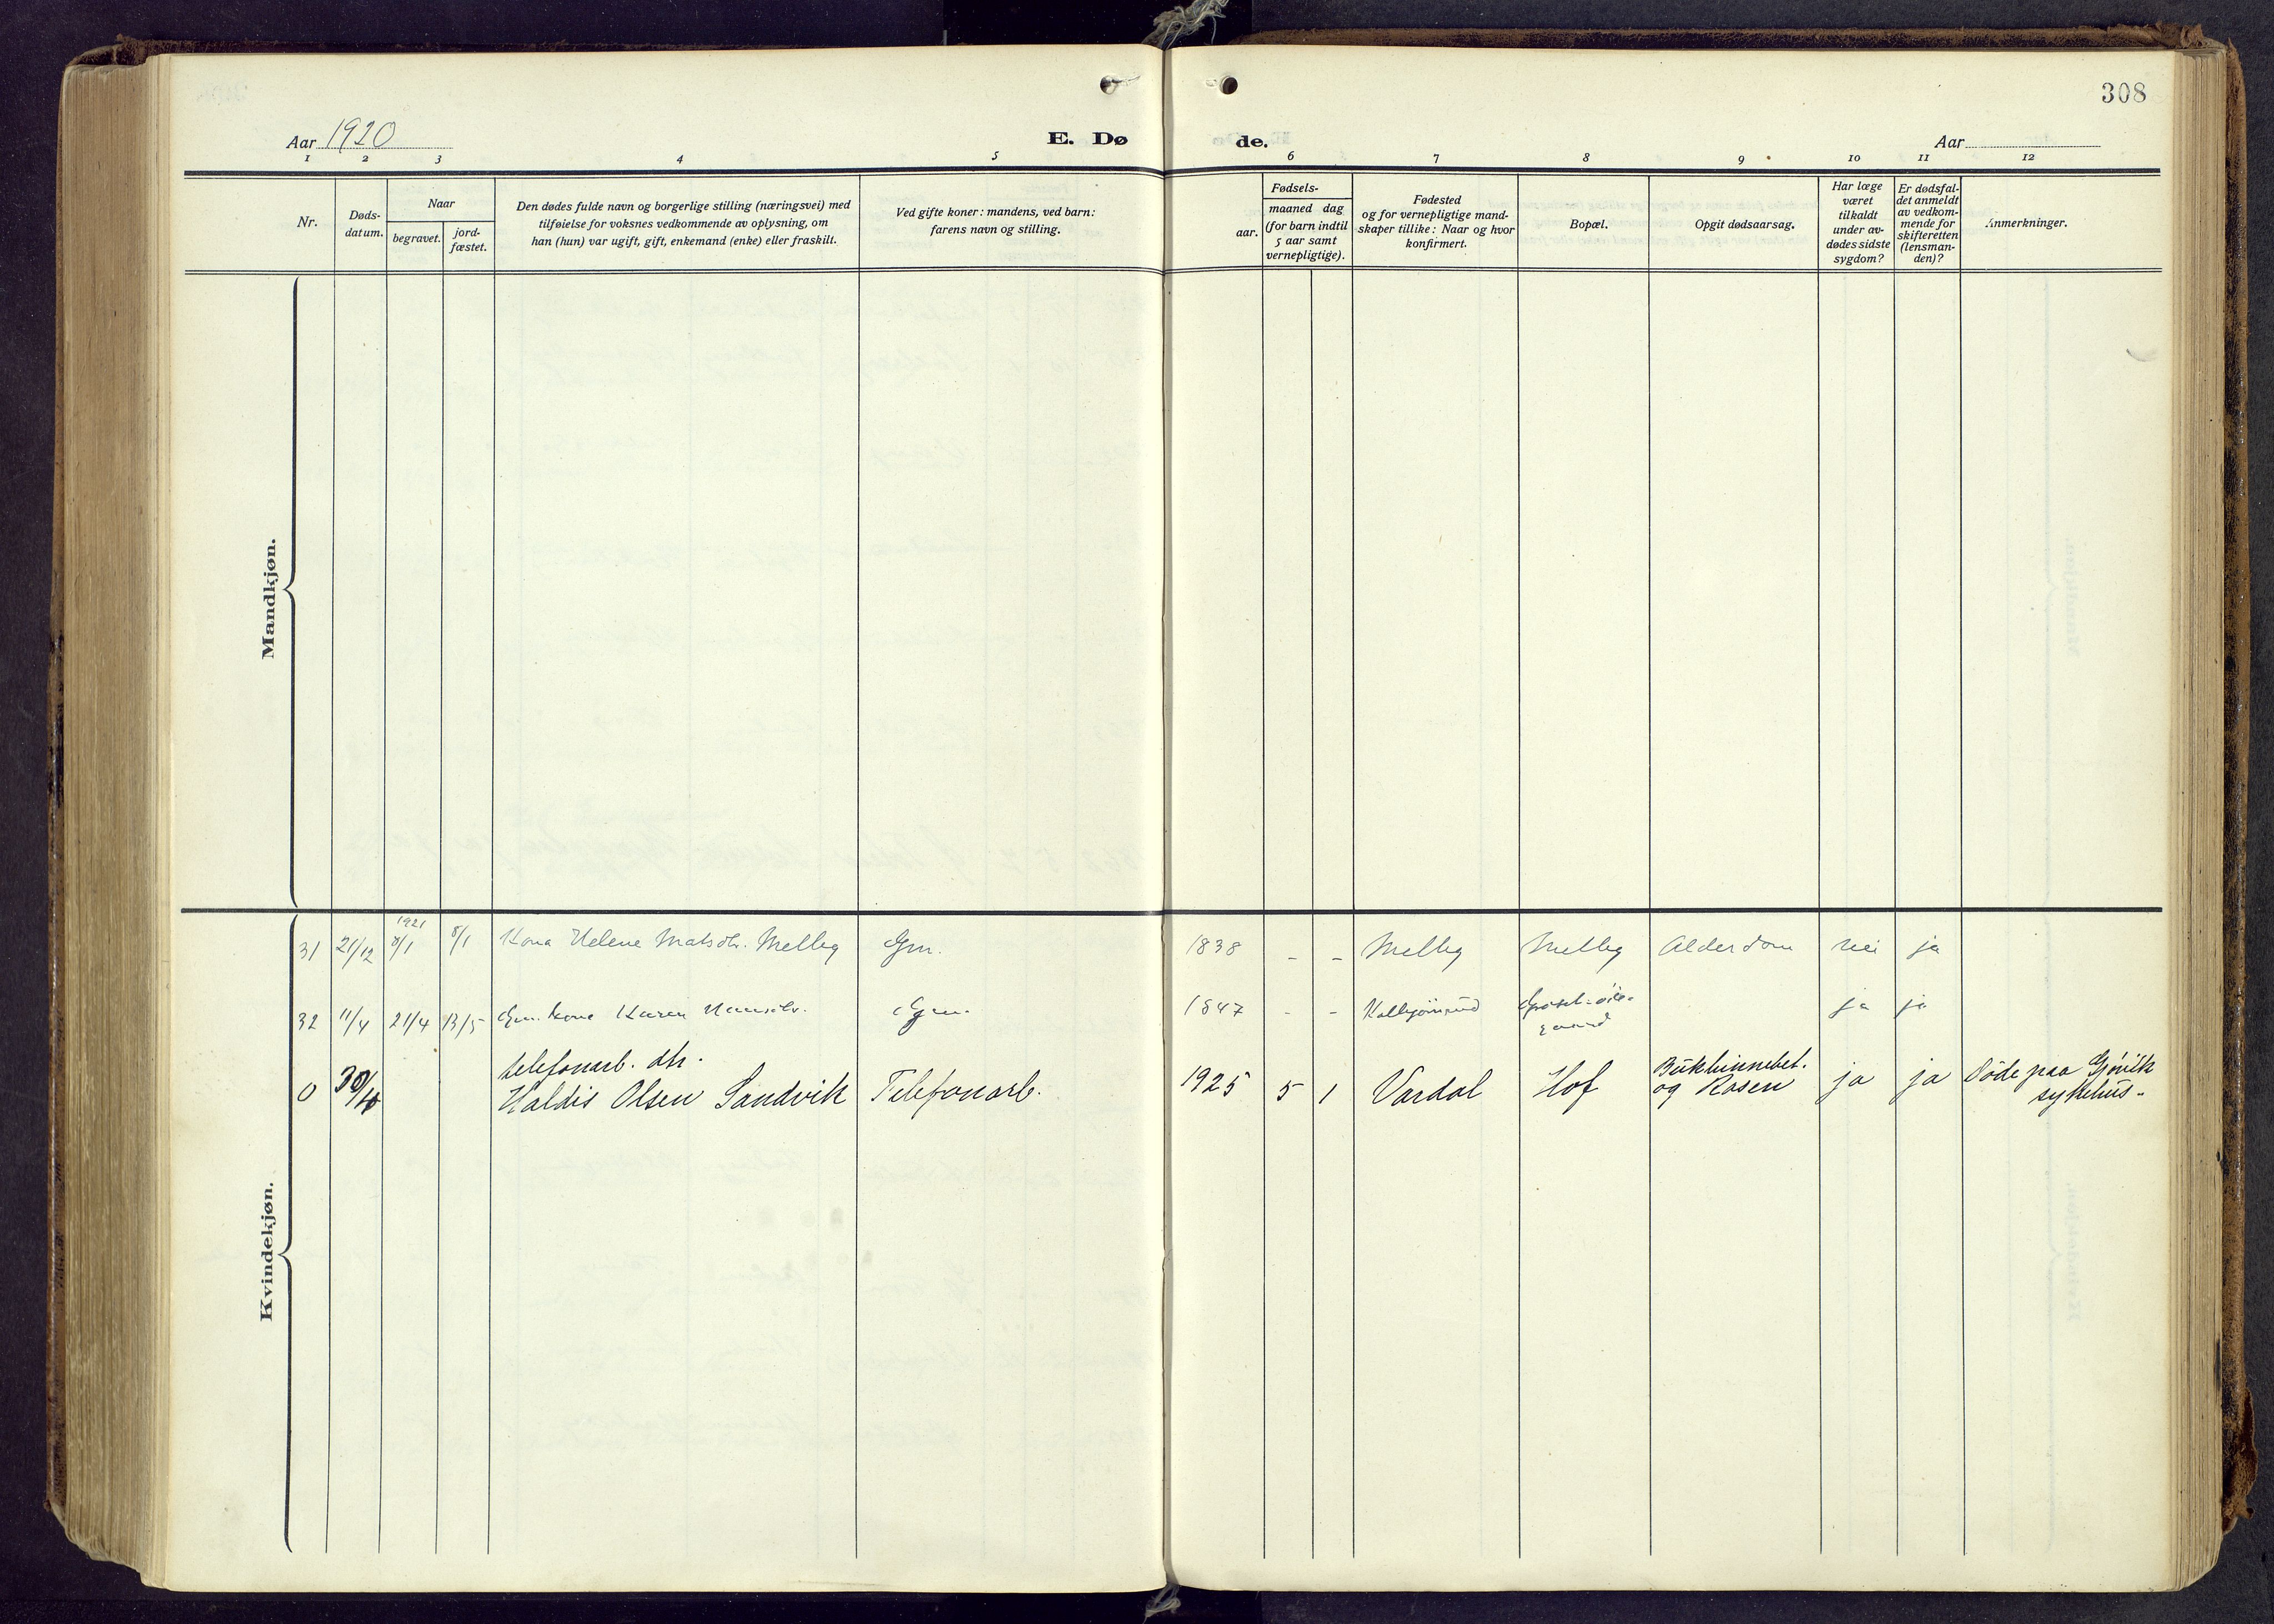 308
Aar 1920
E. Dø
de.
Aar
1 2 3 4 5 6 7 8 9 10 11 12
Nr.
Døds-
datum.
Naar
begravet.
jord-
fæstet.
Den dødes fulde navn og borgerlige stilling (næringsvei) med
tilføielse for voksnes vedkommende av oplysning, om
han (hun) var ugift, gift, enkemand (enke) eller fraskilt.
Ved gifte koner: mandens, ved barn:
farens navn og stilling.
Fødsels-
aar.
maaned dag
(for barn indtil
5 aar samt
vernepligtige).
Fødested
og for vernepligtige mand-
skaper tillike: Naar og hvor
konfirmert.
Bopæl.
Opgit dødsaarsag.
Har læge
været
tilkaldt
under av-
dødes sidste
sygdom?
Er dødsfal-
det anmeldt
av vedkom-
mende for
skifteretten
(lensman-
den)?
Anmerkninger.
Mandkjøn.
Kvindekjøn.
1921
31 21/12 8/1 8/1 Kona Helene Matsdtr. Melby Gm. 1838 - - Melby Melby Alderdom nei ja
32 11/4 21/4 13/5 Gm. kone Karen Gm. 1847 - - ja ja
telefonarb. dtr.
0 30/10 Haldis Olsen Sandvik Telefonarb. 1925 5 1 Vardal Hof Bukhinnebet.
og Rosen ja ja Døde paa Gjøvik
sykehus.